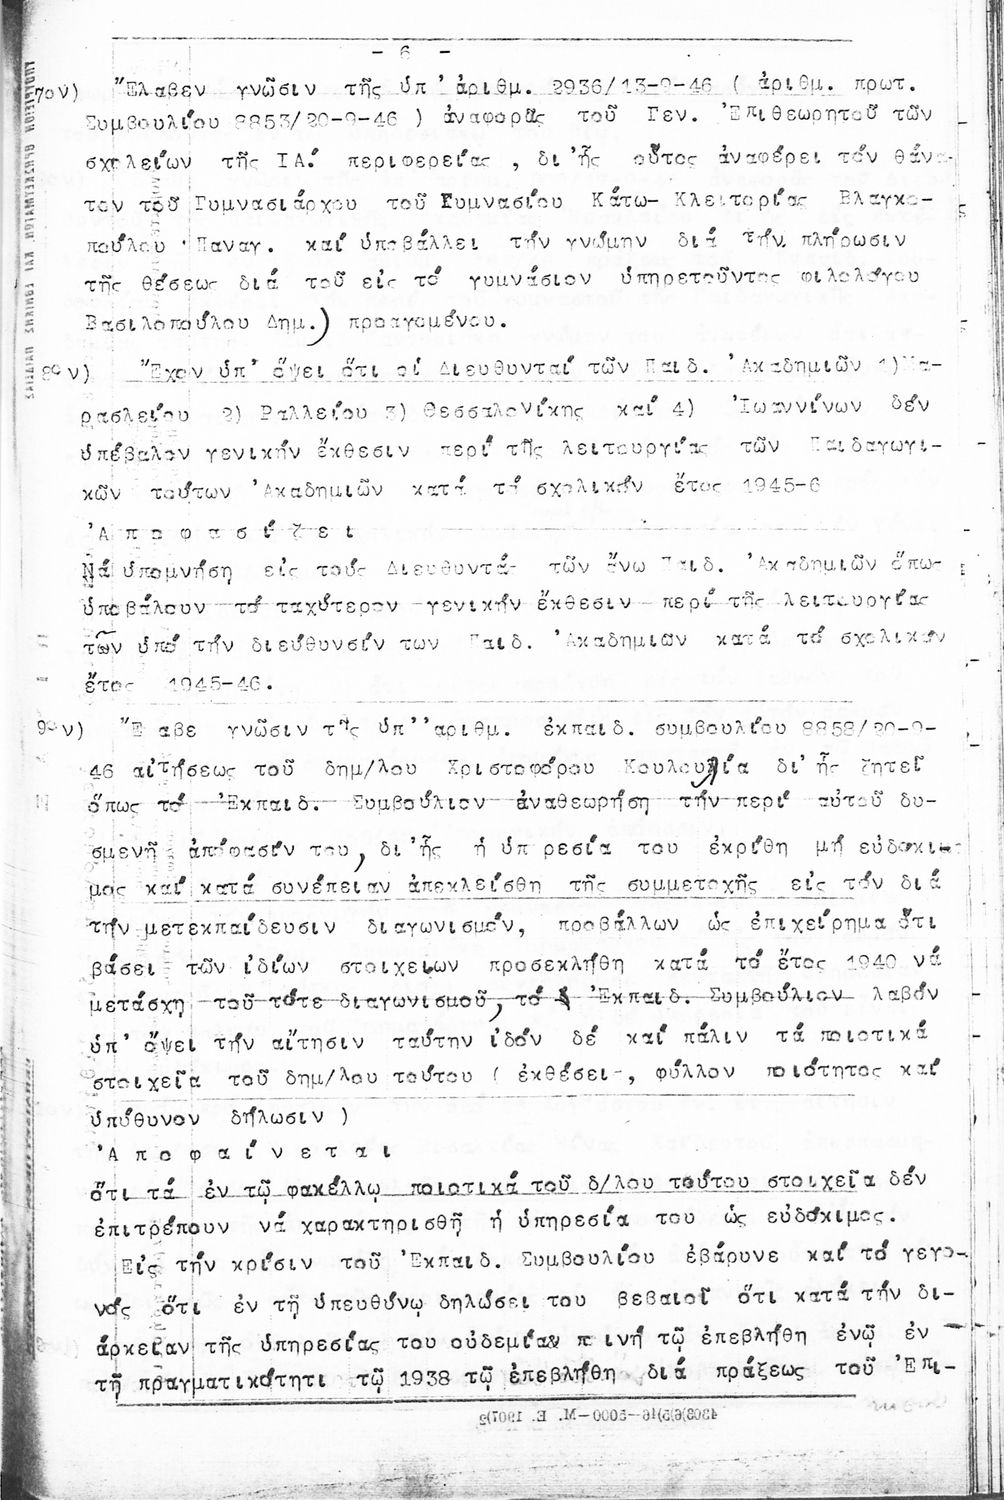 - 6 -
7ον) Ἔλαβεν γνῶσιν τῆς ὑπ' ἀριθμ. 2936/13-9-46 ( ἀριθμ. πρωτ.
Συμβουλίου 8853/20-9-46 ) ἀναφορᾶς τοῦ Γεν. Ἐπιθεωρητοῦ τῶν
σχολείων τῆς ΙΑ! περιφερείας , δι'ἧς οὗτος ἀναφέρει τόν θάνα-
τον τοῦ Γυμνασιάρχου τοῦ Γυμνασίου Κάτω- Κλειτορίας Βλαγκο-
πούλου Παναγ. καί ὑποβάλλει τήν γνώμην διά τήν πλήρωσιν
τῆς θέσεως διά τοῦ εἰς τό γυμνάσιον ὑπηρετοῦντος φιλολόγου
Βασιλοπούλου Δημ.) προαγομένου.
8ον) Ἔχον ὑπ' ὄψει ὅτι οἱ Διευθυνταί τῶν Παιδ. Ἀκαδημιῶν 1)Μα-
ρασλείου 2) Ραλλείου 3) Θεσσαλονίκης καί 4) Ἰωαννίνων δέν
ὑπέβαλον γενικήν ἔκθεσιν περί τῆς λειτουργίας τῶν Παιδαγωγι-
κῶν τούτων Ἀκαδημιῶν κατά τό σχολικόν ἔτος 1945-6
Ἀ π ο φ α σ ί ζ ε ι
Νά ὑπομνήση εἰς τούς Διευθυντάς τῶν ἄνω Παιδ. Ἀκαδημιῶν ὅπως
ὑποβάλουν τό ταχύτερον γενικήν ἔκθεσιν περί τῆς λειτουργίας
τῶν ὑπό τήν διεύθυνσίν των Παιδ. Ἀκαδημιῶν κατά τό σχολικόν
ἔτος 1945-46.
9ον) Ἔ αβε γνῶσιν τῆς ὑπ''αριθμ. ἐκπαιδ. συμβουλίου 8858/20-9-
46 αἰτήσεως τοῦ δημ/λου Χριστοφόρου Κουλουλία δι' ἧς ζητεῖ
ὅπως τό Ἐκπαιδ. Συμβούλιον ἀναθεωρήση τήν περί αὐτοῦ δυ-
σμενῆ ἀπόφασίν του, δι'ἧς ἡ ὑπ ρεσία του ἐκρίθη μή εὐδόκι-
μος καί κατά συνέπειαν ἀπεκλείσθη τῆς συμμετοχῆς εἰς τόν διά
τήν μετεκπαίδευσιν διαγωνισμόν, προβάλλων ὡς ἐπιχείρημα ὅτι
βάσει τῶν ἰδίων στοιχείων προσεκλήθη κατά τό ἔτος 1940 νά
μετάσχη τοῦ τότε διαγωνισμοῦ, τό Ἐκπαιδ. Συμβούλιον λαβόν
ὑπ' ὄψει τήν αἴτησιν ταύτην ἰδόν δέ καί πάλιν τά ποιοτικά
στοιχεῖα τοῦ δημ/λου τούτου ( ἐκθέσεις, φύλλον ποιότητος καί
ὑπύθυνον δήλωσιν )
Ἀ π ο φ α ί ν ε τ α ι
ὅτι τά ἐν τῷ φακέλλῳ ποιοτικά τοῦ δ/λου τούτου στοιχεῖα δέν
ἐπιτρέπουν νά χαρακτηρισθῇ ἡ ὑπηρεσία του ὡς εὐδόκιμος.
Εἰς τήν κρίσιν τοῦ Ἐκπαιδ. Συμβουλίου ἐβάρυνε καί τό γεγο-
νός ὅτι ἐν τῇ ὑπευθύνῳ δηλώσει του βεβαιοῖ ὅτι κατά τήν δι-
άρκειαν τῆς ὑπηρεσίας του οὐδεμία π ινή τῷ ἐπεβλήθη ἐνῷ ἐν
τῇ πραγματικότητι τῷ 1938 τῷ ἐπεβλήθη διά πράξεως τοῦ Ἐπι-